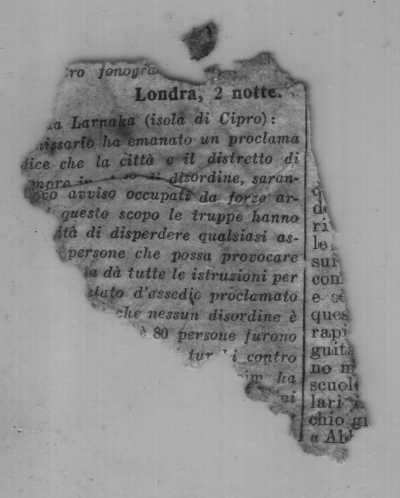 ro fonogra
Londra, 2 notte.
a Larnaka (isola di Cipro):
missario ha emanato un proclama
dice che la città e il distretto di
di disordine, saran-
ovo avviso occupati da forze ar-
questo scopo le truppe hanno
ità di disperdere qualsiasi as-
persone che possa provocare
la dà tutte le istruzioni per
stato d'assedio proclamato
che nessun disordine è
è 80 persone furono
tur i contro
im ha
ni
d
ri
le
sui
com
e se
ques
rapi
guita
no m
scuol
lari
chio gi
a Al